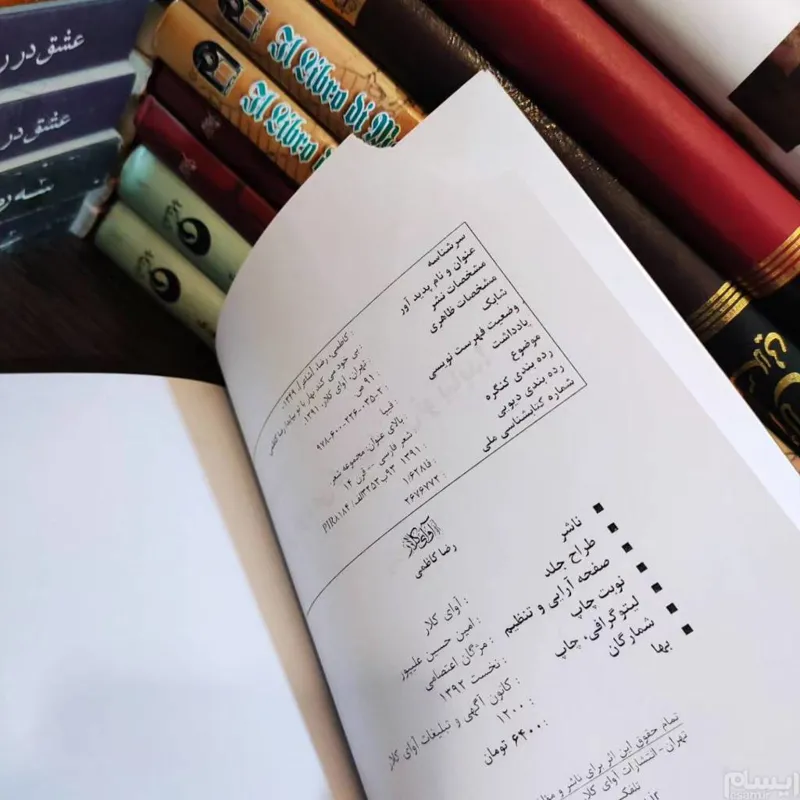 عشق در ر
عشق در
شه
Il Libro di M
Il Libro di
سرشناسه : کاظمی، رضا، (شاعر)، ۱۳۴۹.
عنوان و نام پدید آور : بی خود می کند بهار با تو بیاید/ رضا کاظمی
مشخصات نشر : تهران، آوای کلار، ۱۳۹۱.
مشخصات ظاهری : ۹۱ ص
شابک : ۹۷۸-۶۰۰-۲۳۶-۰۳۵-۲
وضعیت فهرست نویسی : فیپا
یادداشت : بالای عنوان: مجموعه شعر
موضوع : شعر فارسی -- قرن ۱۴
رده بندی کنگره : PIR۸۱۸۴/الف۳۲۵۲ب۹۳ ۱۳۹۱
رده بندی دیویی : ۸فا۱/۶۲
شماره کتابشناسی ملی : ۲۶۷۶۷۷۲
آوای کلار
رضا کاظمی
■ ناشر : آوای کلار
■ طراح جلد : امین حسین علیپور
■ صفحه آرایی و تنظیم : مژگان اعتصامی
■ نوبت چاپ : نخست ۱۳۹۲
■ لیتوگرافی، چاپ : کانون آگهی و تبلیغات آوای کلار
■ شمارگان : ۱۲۰۰
■ بها : ۶۴۰۰ تومان
تمام حقوق این اثر برای ناشر و
تهران - انتشارات آوای کلار
ایسام